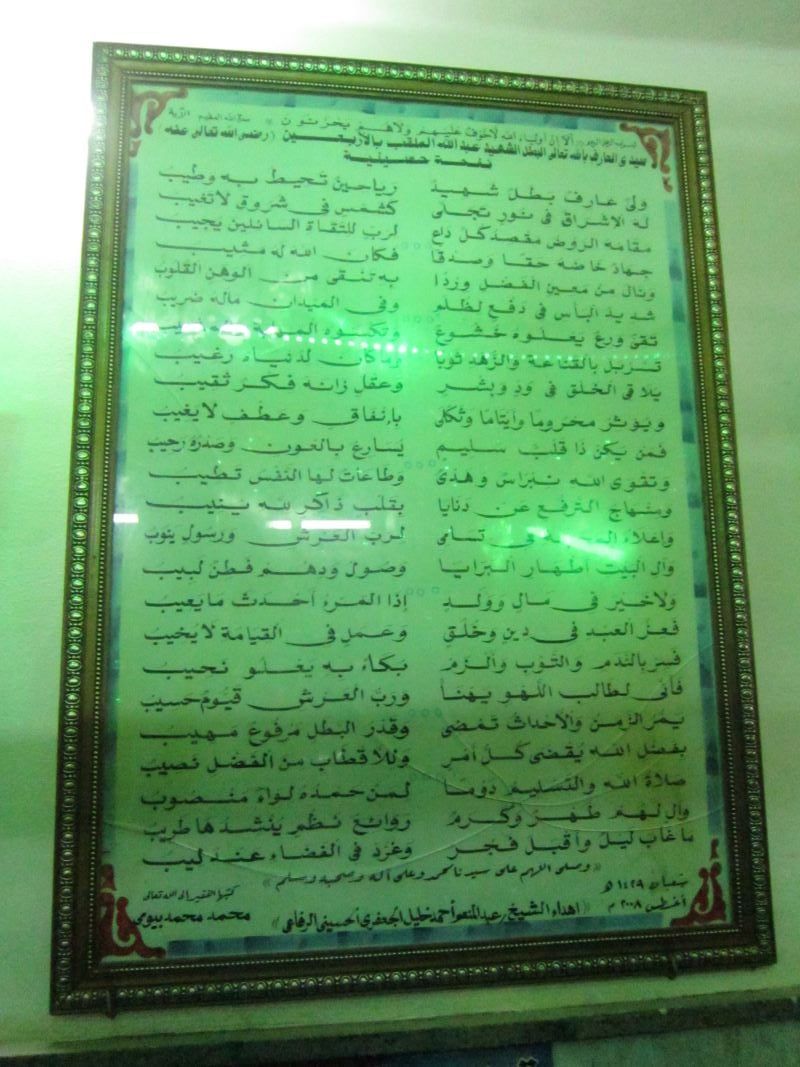 بسم الله الرحمن الرحيم ألا إن أولياء الله لا خوف عليهم ولا هم يحزنون صدق الله العظيم
سيدى العارف بالله تعالى البطل الشهيد عبد الله الملقب بالأربعين (رضى الله تعالى عنه)
نفحة حسينية
ولى عارف بطل شهيد رياحين تحيط به وطيب
له الاشراق فى نور تجلى كشمس فى شروق لا تغيب
مقامه الروض مقصد كل داع لرب للتقاة السائلين يجيب
جهاد خاضه حقا وصدقا فكان الله له مثيب
ونال من معين الفضل وردا به تنقى من الوهن القلوب
شديد البأس فى دفع لظلم وفى الميدان ماله ضريب
تقى ورع يعلوه خشوع
تزيل بالقناعة والزهد ثوبا وما كان لدنياه رغيب
يلاقى الخلق فى ود وبشر وعقل زانه فكر ثقيب
ويؤثر محروما وأيتاما وثكلى بإنفاق وعطف لا يغيب
فمن يكن ذا قلب سليم يسارع بالعون وصدره رحيب
وتقوى الله نبراس وهدى وطاعات لها النفس تطيب
ومنهاج الترفع عن دنايا بقلب ذاكر لله ينيب
واعلاء فى تسامى لرب العرش ورسول ينوب
وآل البيت أطهار البرايا وصول ودهم فطن لبيب
ولا خير فى مال وولد إذا المرء أحدث ما يعيب
فعز العبد فى دين وخلق وعمل فى القيامة لا يخيب
فسر بالندم والتوب والزم بكاء به يعلو نحيب
فأنى لطالب اللهو يهنأ ورب العرش قيوم حسيب
يمر الزمن والأحداث تمضى وقدر البطل مرفوع مهيب
بفضل الله يقضى كل أمر وللأقطاب من الفضل نصيب
صلاة الله والتسليم دوما لمن حمده لواء منصوب
وآل لهم طهر وكرم روائع نظم ينشدها طريب
ما غاب ليل وأقبل فجر وغرد فى الفضاء عندليب
« وصلى اللهم على سيدنا محمد وعلى آله وصحبه وسلم »
شعبان ١٤٢٩ هـ
أغسطس ٢٠٠٨ م
« اهداء الشيخ / عبد المنعم أحمد خليل الجعفرى الحسينى الرفاعى »
كتبها الفقير إلى الله تعالى
محمد محمد بيومى